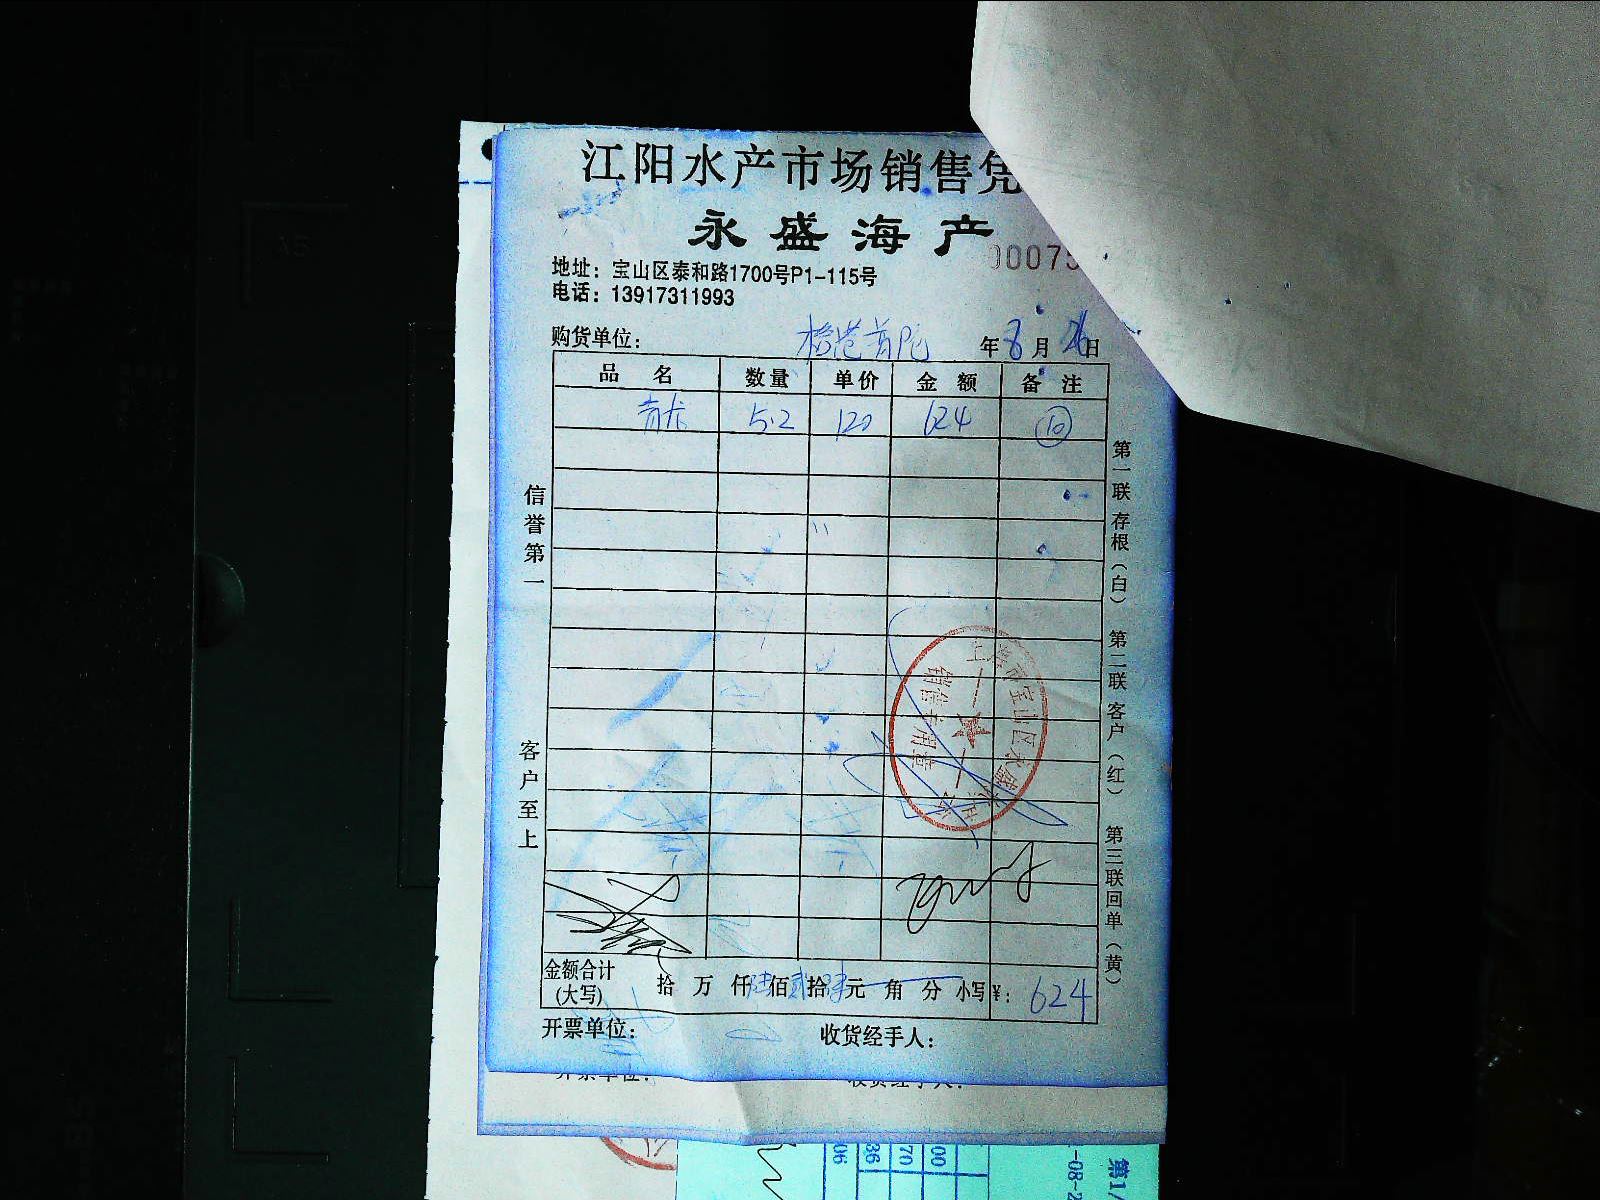 江阳水产市场销售凭
永盛海产
00075
地址：宝山区泰和路1700号P1-115号
电话：13917311993
购货单位： 年8月26日
品名 数量 单价 金额 备注
青龙 5.2 120 624 ⑩
信誉第一
客户至上
第一联存根（白） 第二联客户（红） 第三联回单（黄）
上海市宝山区永盛
销售专用章
金额合计(大写) 拾万仟陆佰贰拾肆元角分 小写¥：624
开票单位： 收货经手人：
开票单位： 收货经手人：
06
36
70
00
-08-2
第1/